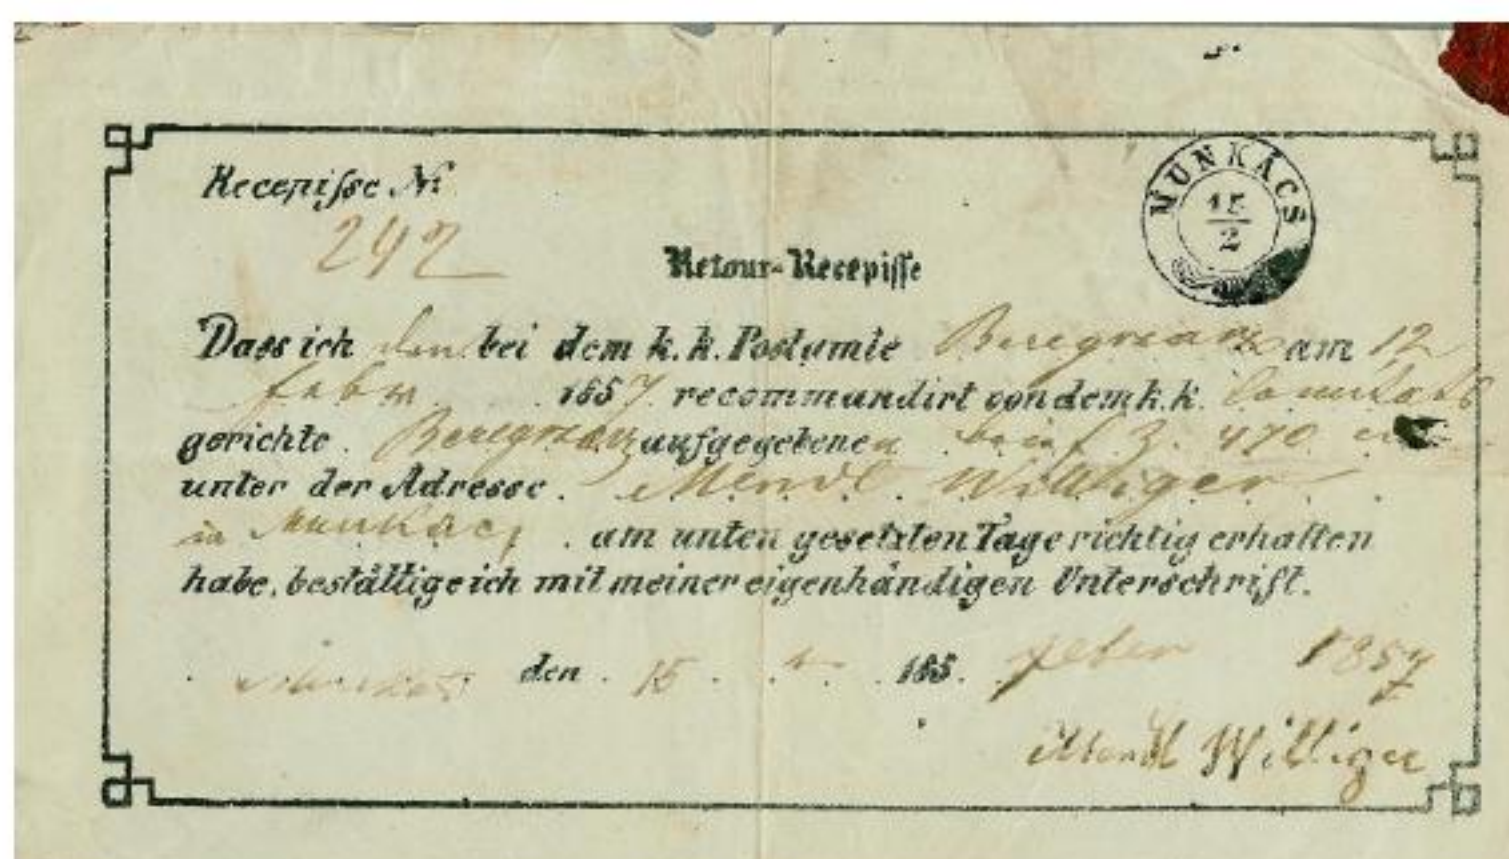 Recepisse Nr
242
MUNKÁCS
15
2
Retour-Recepisse
Dass ich den bei dem k. k. Postamte Beregszasz am 12
Febr. 1857 recommandirt von dem k. k. Comitats
gerichte Beregszasz aufgegebenen Brief Z. 470
unter der Adresse Mendl Williger
in Munkacs am unten gesetzten Tage richtig erhalten
habe, bestättige ich mit meiner eigenhändigen Unterschrift.
Munkacs den 15 185 Feber 1857
Mendl Williger